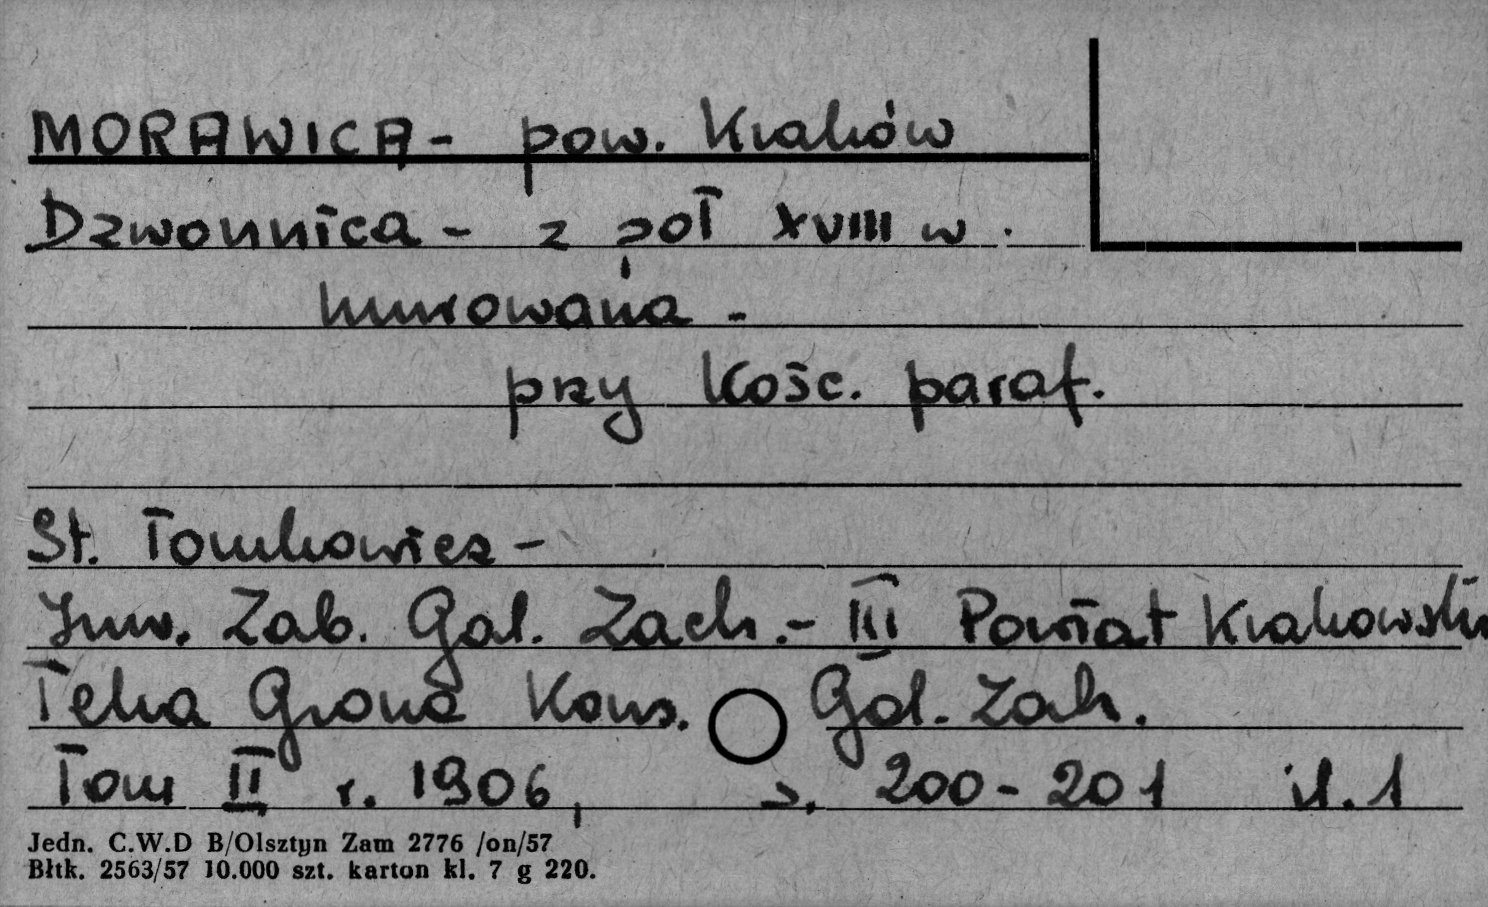 MORAWICA - pow. Kraków
Dzwonnica - z poł XVIII w.
murowana -
przy Kośc. paraf.
St. Tomkowicz -
Inw. Zab. Gal. Zach. - III Powiat Krakowski
Teka Grona Kons. Gal. Zach.
Tom II r. 1906, s. 200-201 il. 1
Jedn. C.W.D B/Olsztyn Zam 2776 /on/57
Błtk. 2563/57 10.000 szt. karton kl. 7 g 220.